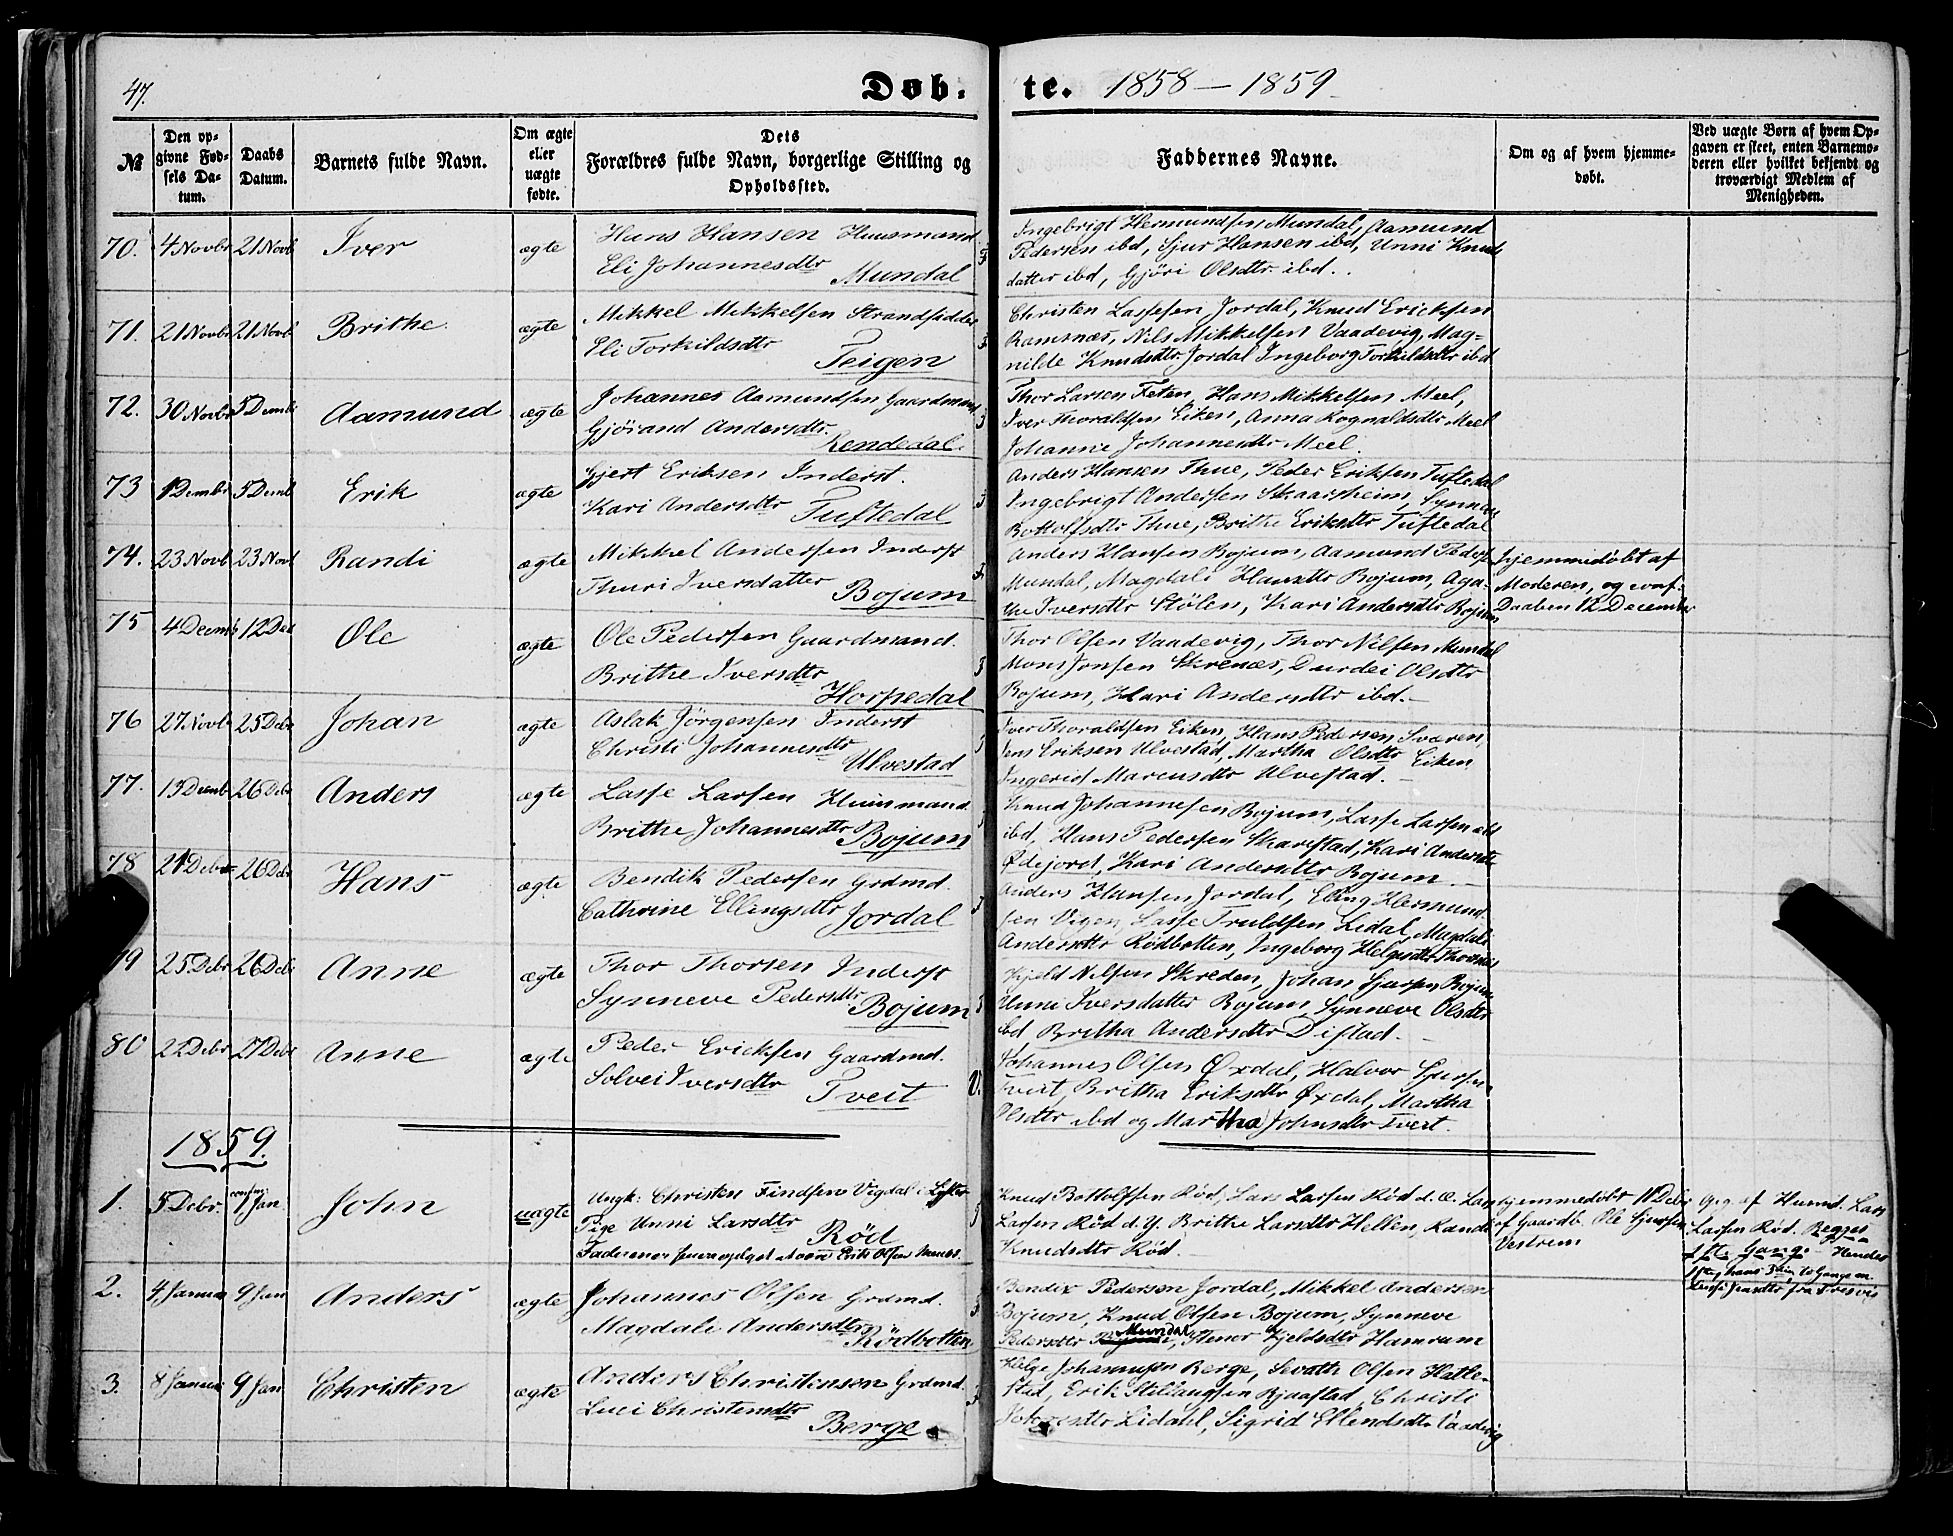 47.
Døb-
te. 1858 — 1859
№
Den opgivne Fødsels Datum.
Daabs Datum.
Barnets fulde Navn.
Om ægte eller uægte fødte.
Dets Forældres fulde Navn, borgerlige Stilling og Opholdssted.
Faddernes Navne.
Om og af hvem hjemmedøbt.
Ved uægte Børn af hvem Opgaven er skeet, enten Barnemoderen eller hvilket bekjendt og troværdigt Medlem af Menigheden.
70. 4 Novbr 21 Novb Iver ægte
Hans Hansen Huusmand
Eli Johannesdtr Mundal
Ingebrigt Hermundsen Mundal, Aamund
Pedersen ibd, Sjur Hansen ibd, Unni Knuds
datter ibd, Gjöri Olsdtr ibd.
71. 21 Novbr 21 Novb Brithe ægte
Mikkel Mikkelsen Strandsidder
Eli Torkildsdtr Teigen
Christen Lassesen Jordal, Knud Ericksen
Ramsnæs, Nils Mikkelsen Vaadevig, Mag-
nilde Knudsdtr Jordal Ingeborg Torkildsdtr ibd
72. 30 Novbr 5 Dembr Aamund ægte
Johannes Aamundsen Gaardmand
Gjörand Andersdtr Rendedal
Thor Larsen Feten, Hans Mikkelsen Meel,
Iver Thoraldsen Eiken, Anna Rognaldsdtr Meel
Johanne Johannesdtr Meel.
73 1 Dembr 5 Demb Erik ægte
Gjert Eriksen Inderst.
Kari Andersdtr Tuftedal
Anders Hansen Thue, Peder Eriksen Tuftedal
Ingebrigt Andersen Skaarsheim, Synneve
Bottolfsdtr Thue, Brithe Eriksdtr Tuftedal
74. 23 Novb 23 Novb Randi ægte
Mikkel Andersen Inderst
Thuri Iversdatter Bojum
Anders Hansen Bojum, Aamund Peders
Mundal, Magdali Hansdtr Bojum, Aga-
the Iversdtr Stölen, Kari Andersdtr Bojum
hjemmedöbt af
Moderen, og conf.
Daaben 12 December
75 4 Decmb 12 Dec Ole ægte
Ole Pedersen Gaardmand.
Brithe Iversdtr Horpedal
Thor Olsen Vaadevig, Thor Nilsen Mundal
Mons Jonsen Skrenæs, Durdei Olsdtr
Bojum, Kari Andersdtr ibd.
76 27 Novb 25 Debr Johan ægte
Aslak Jörgensen Inderst
Christi Johannesdtr Ulvestad
Iver Thoraldsen Eiken, Hans Pedersen Sværen,
Jens Eriksen Ulvestad, Martha Olsdtr Eiken
Ingerid Marcusdtr Ulvestad.
77. 19 Decmb 26 Debr Anders ægte
Lasse Larsen Huusmand
Brithe Johannesdtr Bojum
Knud Johannesen Bojum, Lasse Larsen
ibd, Hans Pedersen Skarestad, Kari Andersdtr
Ødejord, Kari Andersdtr Bojum.
78 21 Debr 26 Debr Hans ægte
Bendik Pedersen Grdmd.
Cathrine Ellingsdtr Jordal
Anders Hansen Jordal, Elling Hermund-
sen Vigen, Lasse Truldsen Lidal, Magdali
Andersdtr Rödbotten, Ingeborg Helgesdtr Thornes
79 25 Debr 26 Debr Anne ægte
Thor Thorsen Inderst
Synneve Pedersdtr Bojum
Kjeld Nilsen Skreden, Johan Sjursen Bojum
Unni Iversdatter Bojum, Synneve Olsdtr
ibd Britha Andersdtr Distad.
80 22 Debr 27 Debr Anne ægte
Peder Ericksen Gaardmd.
Solvei Iversdtr Tveit
Johannes Olsen Øxdal, Halvor Sjursen
Tveit, Britha Eriksdtr Øxdal, Martha
Olsdtr ibd og Martha Johnsdtr Tveit.
1859.
1. 5 Debr. 1 Jan. John uægte
Ungk: Christen Findsen Vigdal i Lyster
Pige Unni Larsdtr Röd
Knud Bottolfsen Röd, Lars Larsen Röd d. æ. Lars
Larsen Röd d. y. Brithe Larsdtr Hellen, Randi
Knudsdtr Röd.
hjemmedöbt 11 Debr
af Gaardb. Ole Sjursen
Vestrem
Opg. af Husmd. Lars
Larsen Röd.
2. 4 Januar 9 Jan Anders ægte
Johannes Olsen Grdmd.
Magdali Andersdtr Rödbotten
Bendix Pedersen Jordal, Mikkel Andersen
Bojum, Knud Olsen Bojum, Synneve
Pedersdtr Mundal, Stenor Kjeldsdtr Hamrum
3. 8 Januar 9 Jan Christen ægte
Anders Christensen Grdmd.
Luci Christensdtr Berge
Helge Johannesen Berge, Sevath Olsen Hatle-
stad, Erik Stillaugsen Bjaastad, Christi
Lidahl, Sigrid Ellendsdtr Vaadevig